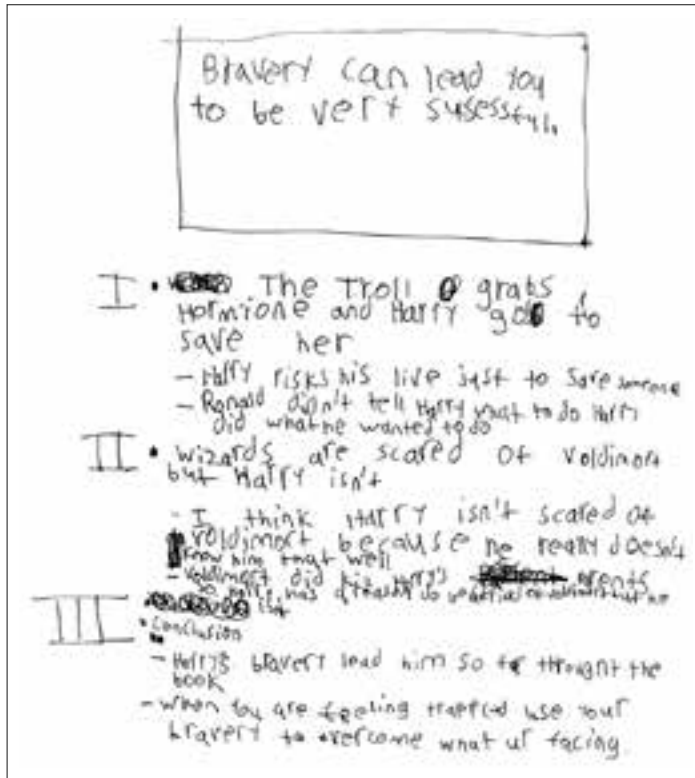 Bravery can lead you
to be very susessful.
I • The Troll grabs
Hormione and Harry go to
save her
- Harry risks his live just to save someone
- Ronald didn't tell Harry what to do Harry
did what he wanted to do
II • wizards are scared of voldimort
but Harry isn't
- I think Harry isn't scared of
voldimort because he really doesn't
know him that well
- voldimort did kill Harry's arents
so Harry has a reason to be
isn't
III
• Conclusion
- Harry's bravery lead him so far throught the
book
- when you are feeling trapped use your
bravery to overcome what ur facing